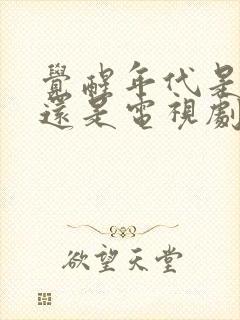 覺醒年代是
還是電視劇
欲望天堂